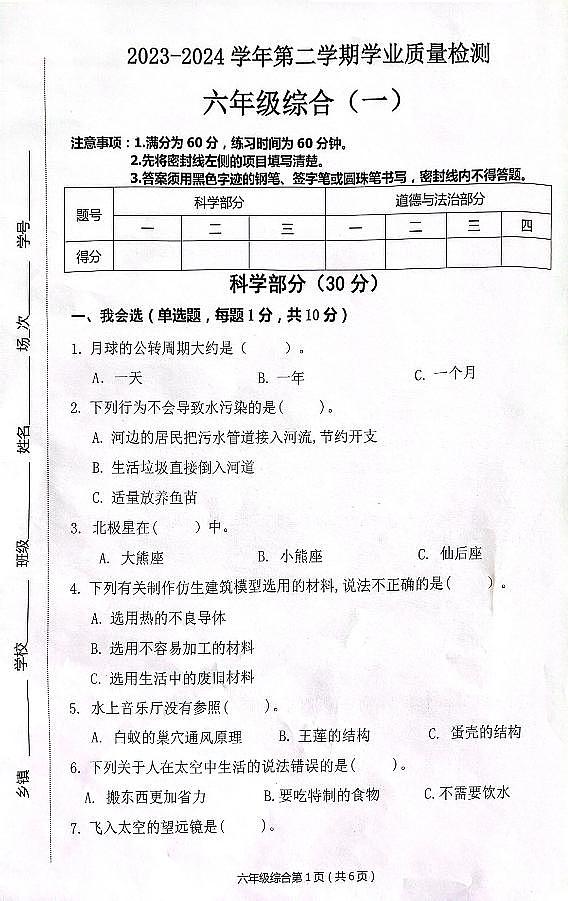 2023-2024 学年第二学期学业质量检测
六年级综合（一）
注意事项：1.满分为 60 分，练习时间为 60 分钟。
2.先将密封线左侧的项目填写清楚。
3.答案须用黑色字迹的钢笔、签字笔或圆珠笔书写，密封线内不得答题。
题号 科学部分 道德与法治部分
一 二 三 一 二 三 四
得分
科学部分（30 分）
一、我会选（单选题，每题 1 分，共 10 分）
1. 月球的公转周期大约是（ ）。
A. 一天 B. 一年 C. 一个月
2. 下列行为不会导致水污染的是( )。
A. 河边的居民把污水管道接入河流,节约开支
B. 生活垃圾直接倒入河道
C. 适量放养鱼苗
3. 北极星在( ）中。
A. 大熊座 B. 小熊座 C. 仙后座
4. 下列有关制作仿生建筑模型选用的材料,说法不正确的是( ）。
A. 选用热的不良导体
B. 选用不容易加工的材料
C. 选用生活中的废旧材料
5. 水上音乐厅没有参照( )。
A. 白蚁的巢穴通风原理 B. 王莲的结构 C. 蛋壳的结构
6. 下列关于人在太空中生活的说法错误的是( )。
A. 搬东西更加省力 B.要吃特制的食物 C.不需要饮水
7. 飞入太空的望远镜是( )。
六年级综合第 1 页（共 6 页）
乡镇 学校 班级 姓名 场次 学号